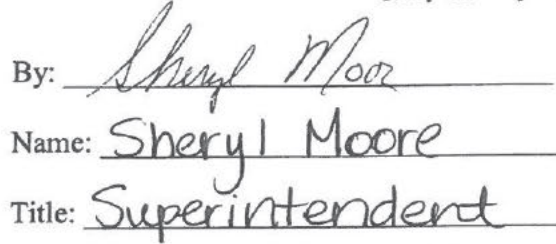 By: Sheryl Moor
Name: Sheryl Moore
Title: Superintendent